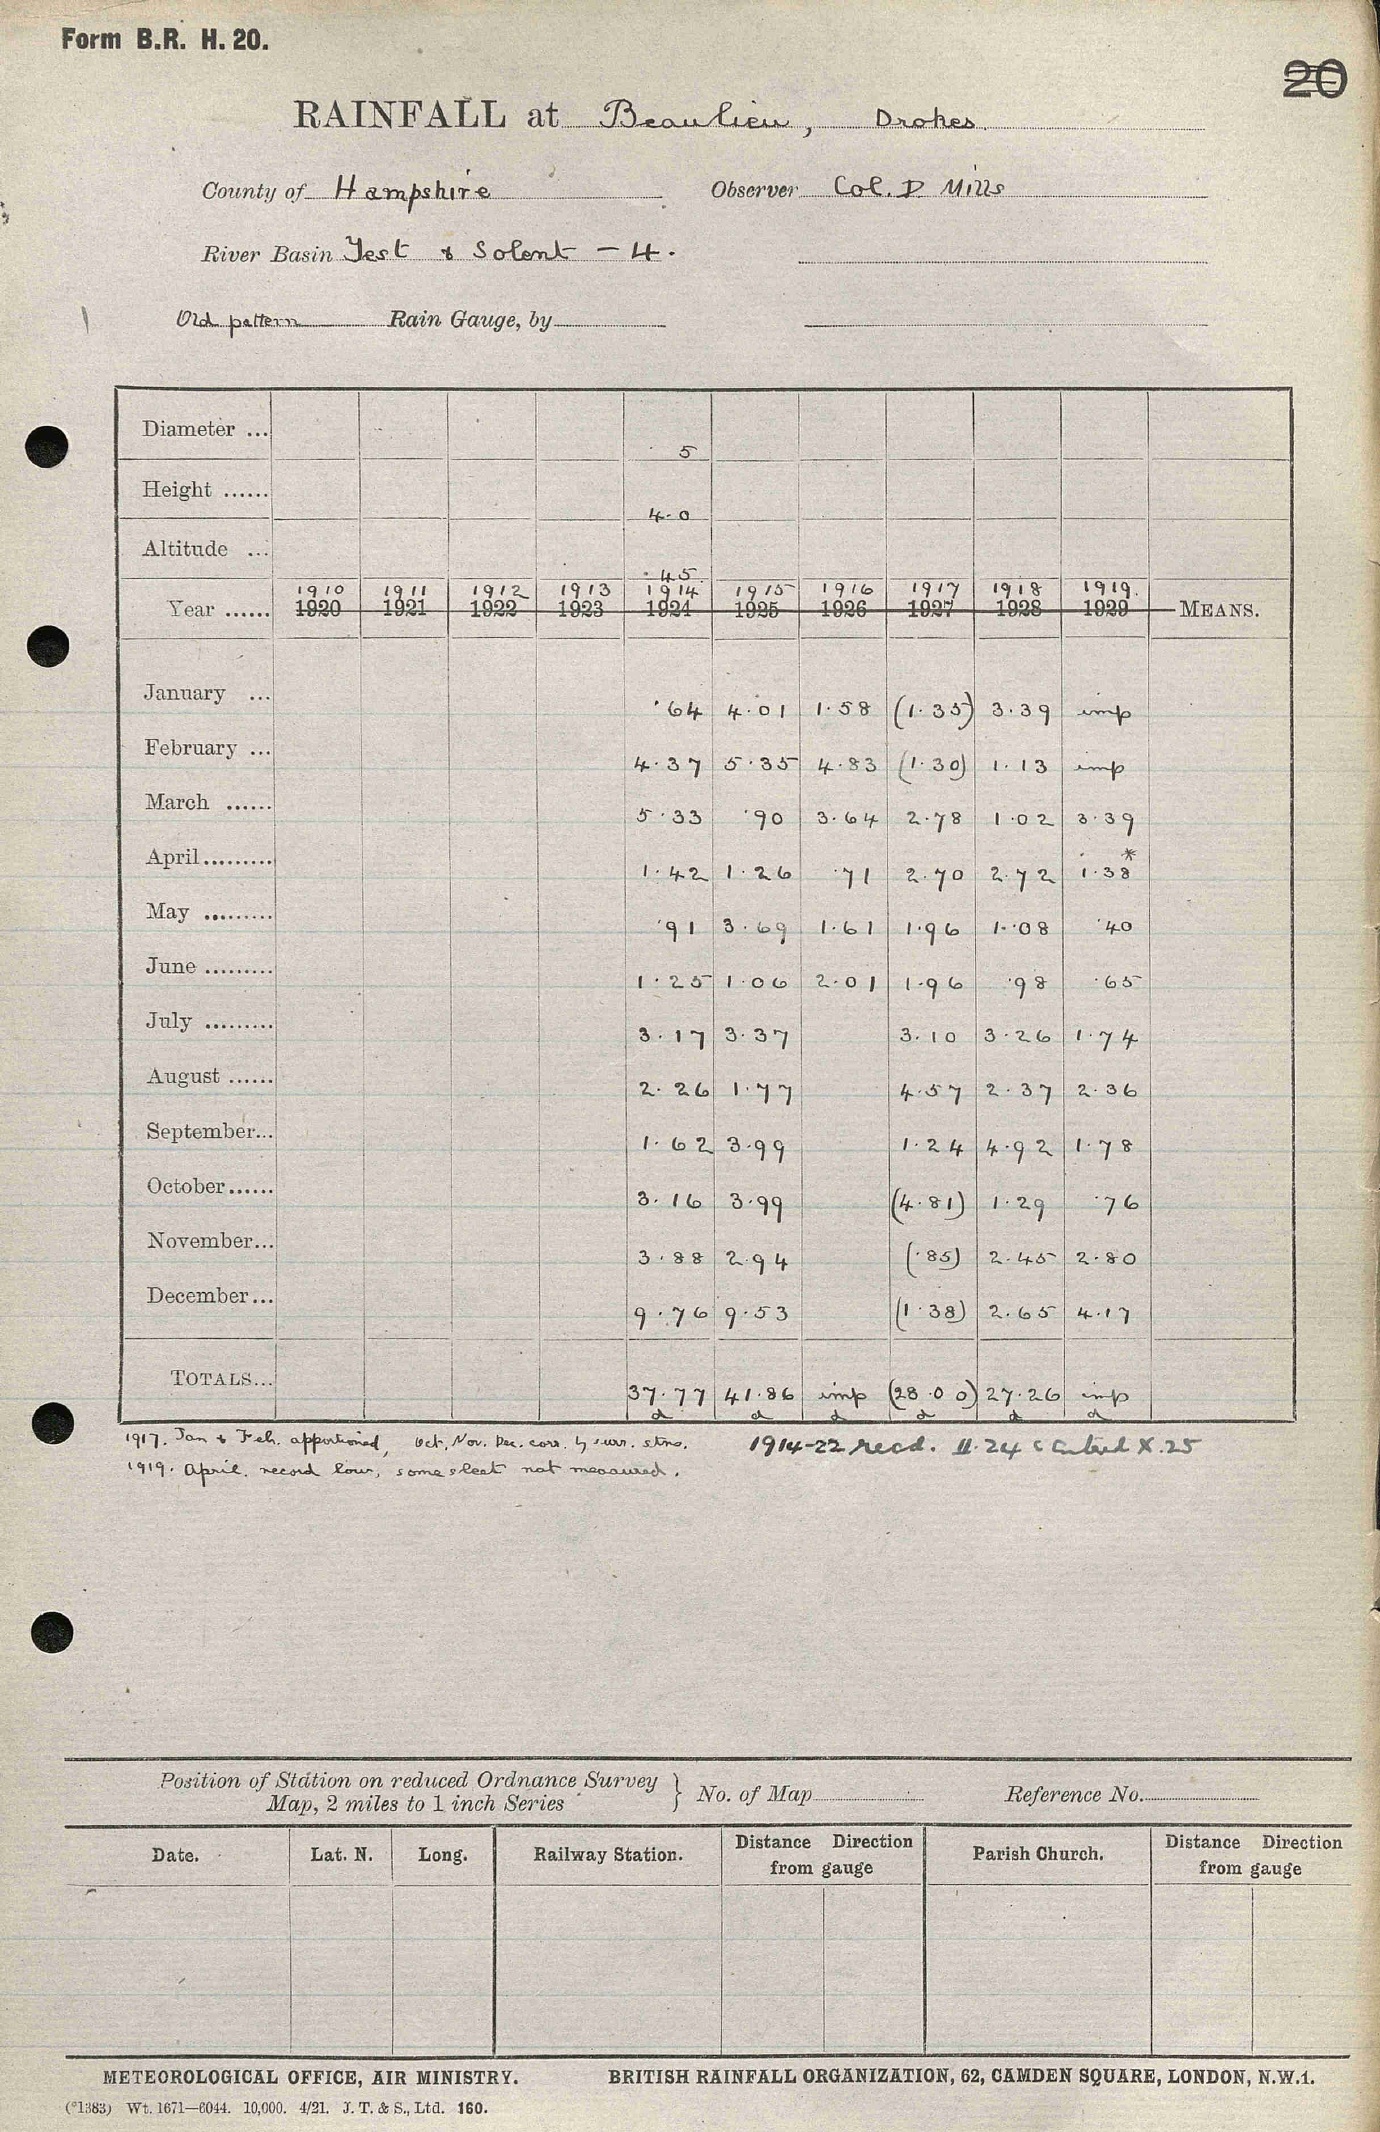 Form B.R. H. 20.
20
RAINFALL at Beaulieu, Drokes.
County of Hampshire Observer Col. D Mills
River Basin Test & Solent - 4.
Old pattern Rain Gauge, by
Diameter ... 5
Height ...... 4.0
Altitude ... 45
1910 1911 1912 1913 1914 1915 1916 1917 1918 1919.
Year ...... 1920 1921 1922 1923 1924 1925 1926 1927 1928 1929 MEANS.
January ... ·64 4·01 1·58 (1·35) 3·39 imp
February ... 4·37 5·35 4·83 (1·30) 1·13 imp
March ...... 5·33 ·90 3·64 2·78 1·02 3·39
April ......... 1·42 1·26 ·71 2·70 2·72 1·38*
May ......... ·91 3·69 1·61 1·96 1·08 ·40
June ......... 1·25 1·06 2·01 1·96 ·98 ·65
July ......... 3·17 3·37 3·10 3·26 1·74
August ...... 2·26 1·77 4·57 2·37 2·36
September... 1·62 3·99 1·24 4·92 1·78
October...... 3·16 3·99 (4·81) 1·29 ·76
November... 3·88 2·94 (·85) 2·45 2·80
December... 9·76 9·53 (1·38) 2·65 4·17
TOTALS... 37·77 41·86 imp (28·00) 27·26 imp
d d d d d d
1917. Jan & Feb. apportioned, Oct, Nov. Dec. corr. by surr. stns. 1914-22 recd. II.24 X.25
1919. April. record low, some sleet not measured.
Position of Station on reduced Ordnance Survey
Map, 2 miles to 1 inch Series } No. of Map Reference No.
Date. Lat. N. Long. Railway Station. Distance Direction from gauge Parish Church. Distance Direction from gauge
METEOROLOGICAL OFFICE, AIR MINISTRY. BRITISH RAINFALL ORGANIZATION, 62, CAMDEN SQUARE, LONDON, N.W.1.
(*1383) Wt. 1671—6044. 10,000. 4/21. J. T. & S., Ltd. 160.